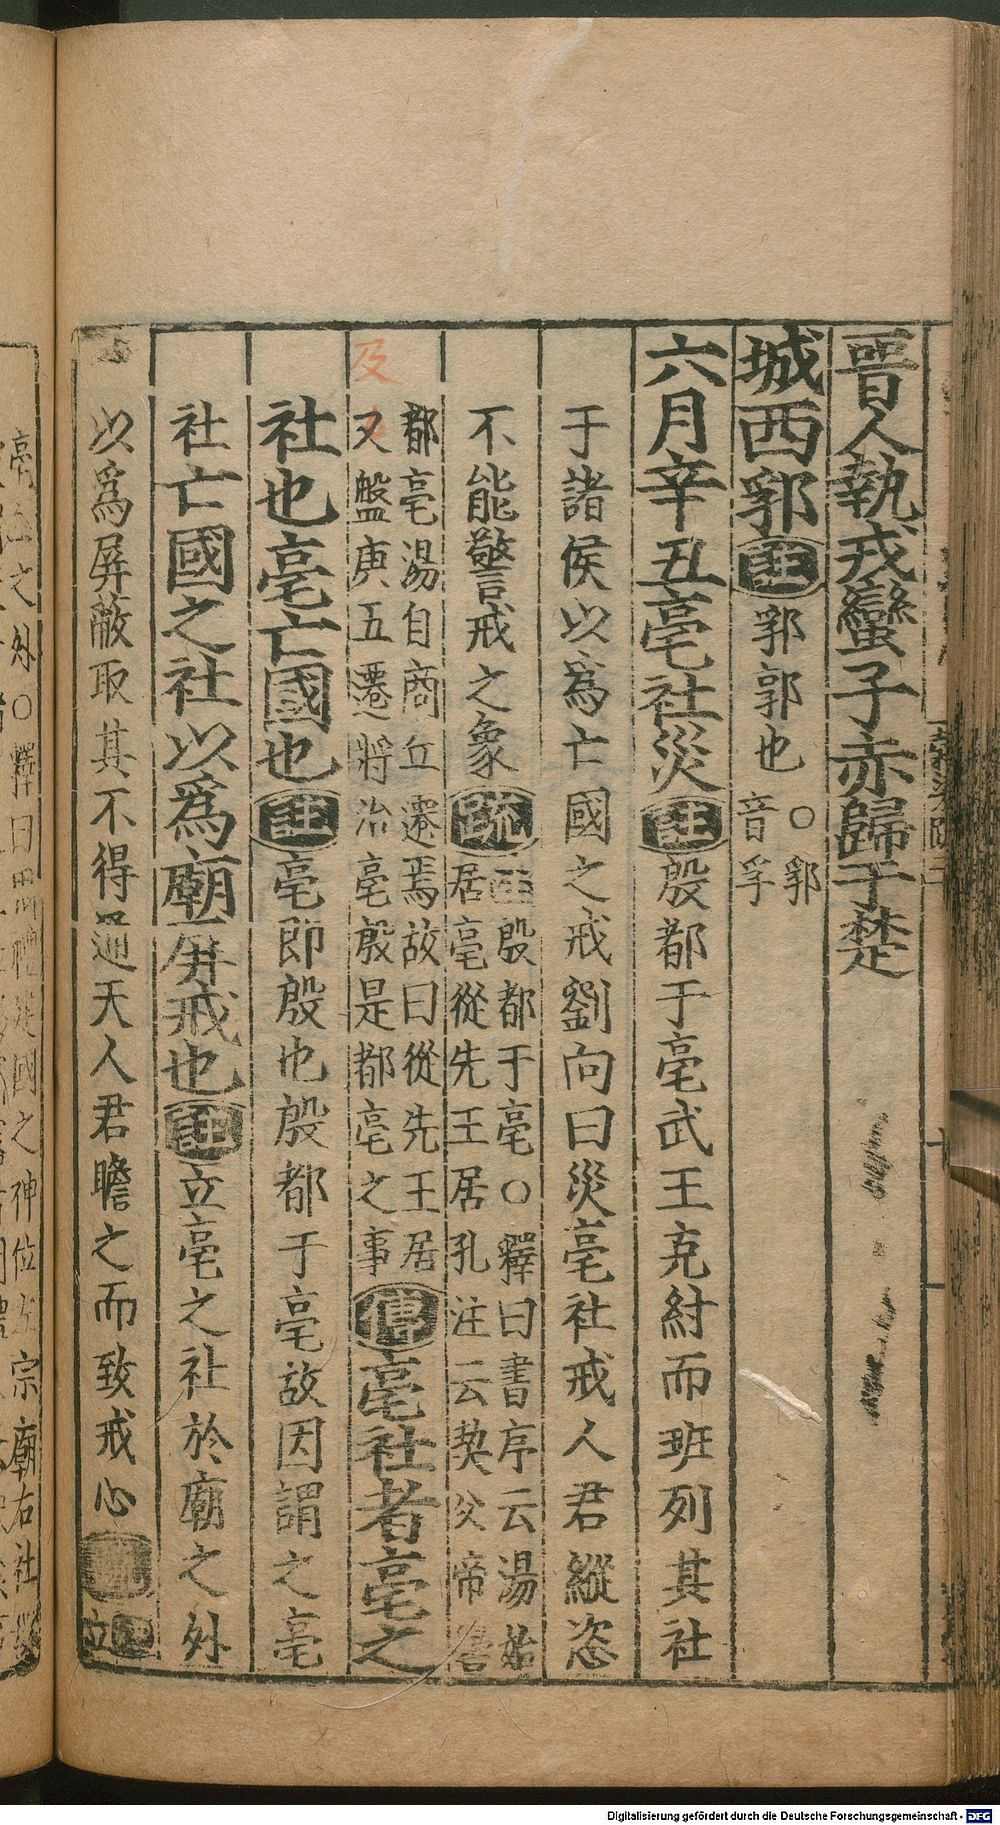 晉人執戎蠻子赤歸于楚
城西郛註郛郭也○郛音孚
六月辛丑亳社災註殷都于亳武王克紂而班列其社
于諸侯以爲亡國之戒劉向曰災亳社戒人君縱恣
不能警戒之象疏註殷都于亳○釋曰書序云湯始居亳從先王居孔注云契父帝嚳
都亳湯自商丘遷焉故曰從先王居又盤庚五遷將治亳殷是都亳之事傳亳社者亳之
及
社也亳亡國也註亳即殷也殷都于亳故因謂之亳
社亡國之社以爲廟屏戒也註立亳之社於廟之外
以爲屏蔽取其不得通天人君瞻之而致戒心
亳
之外○釋曰
國之神位左宗廟右社稷
Digitalisierung gefördert durch die Deutsche Forschungsgemeinschaft - DFG